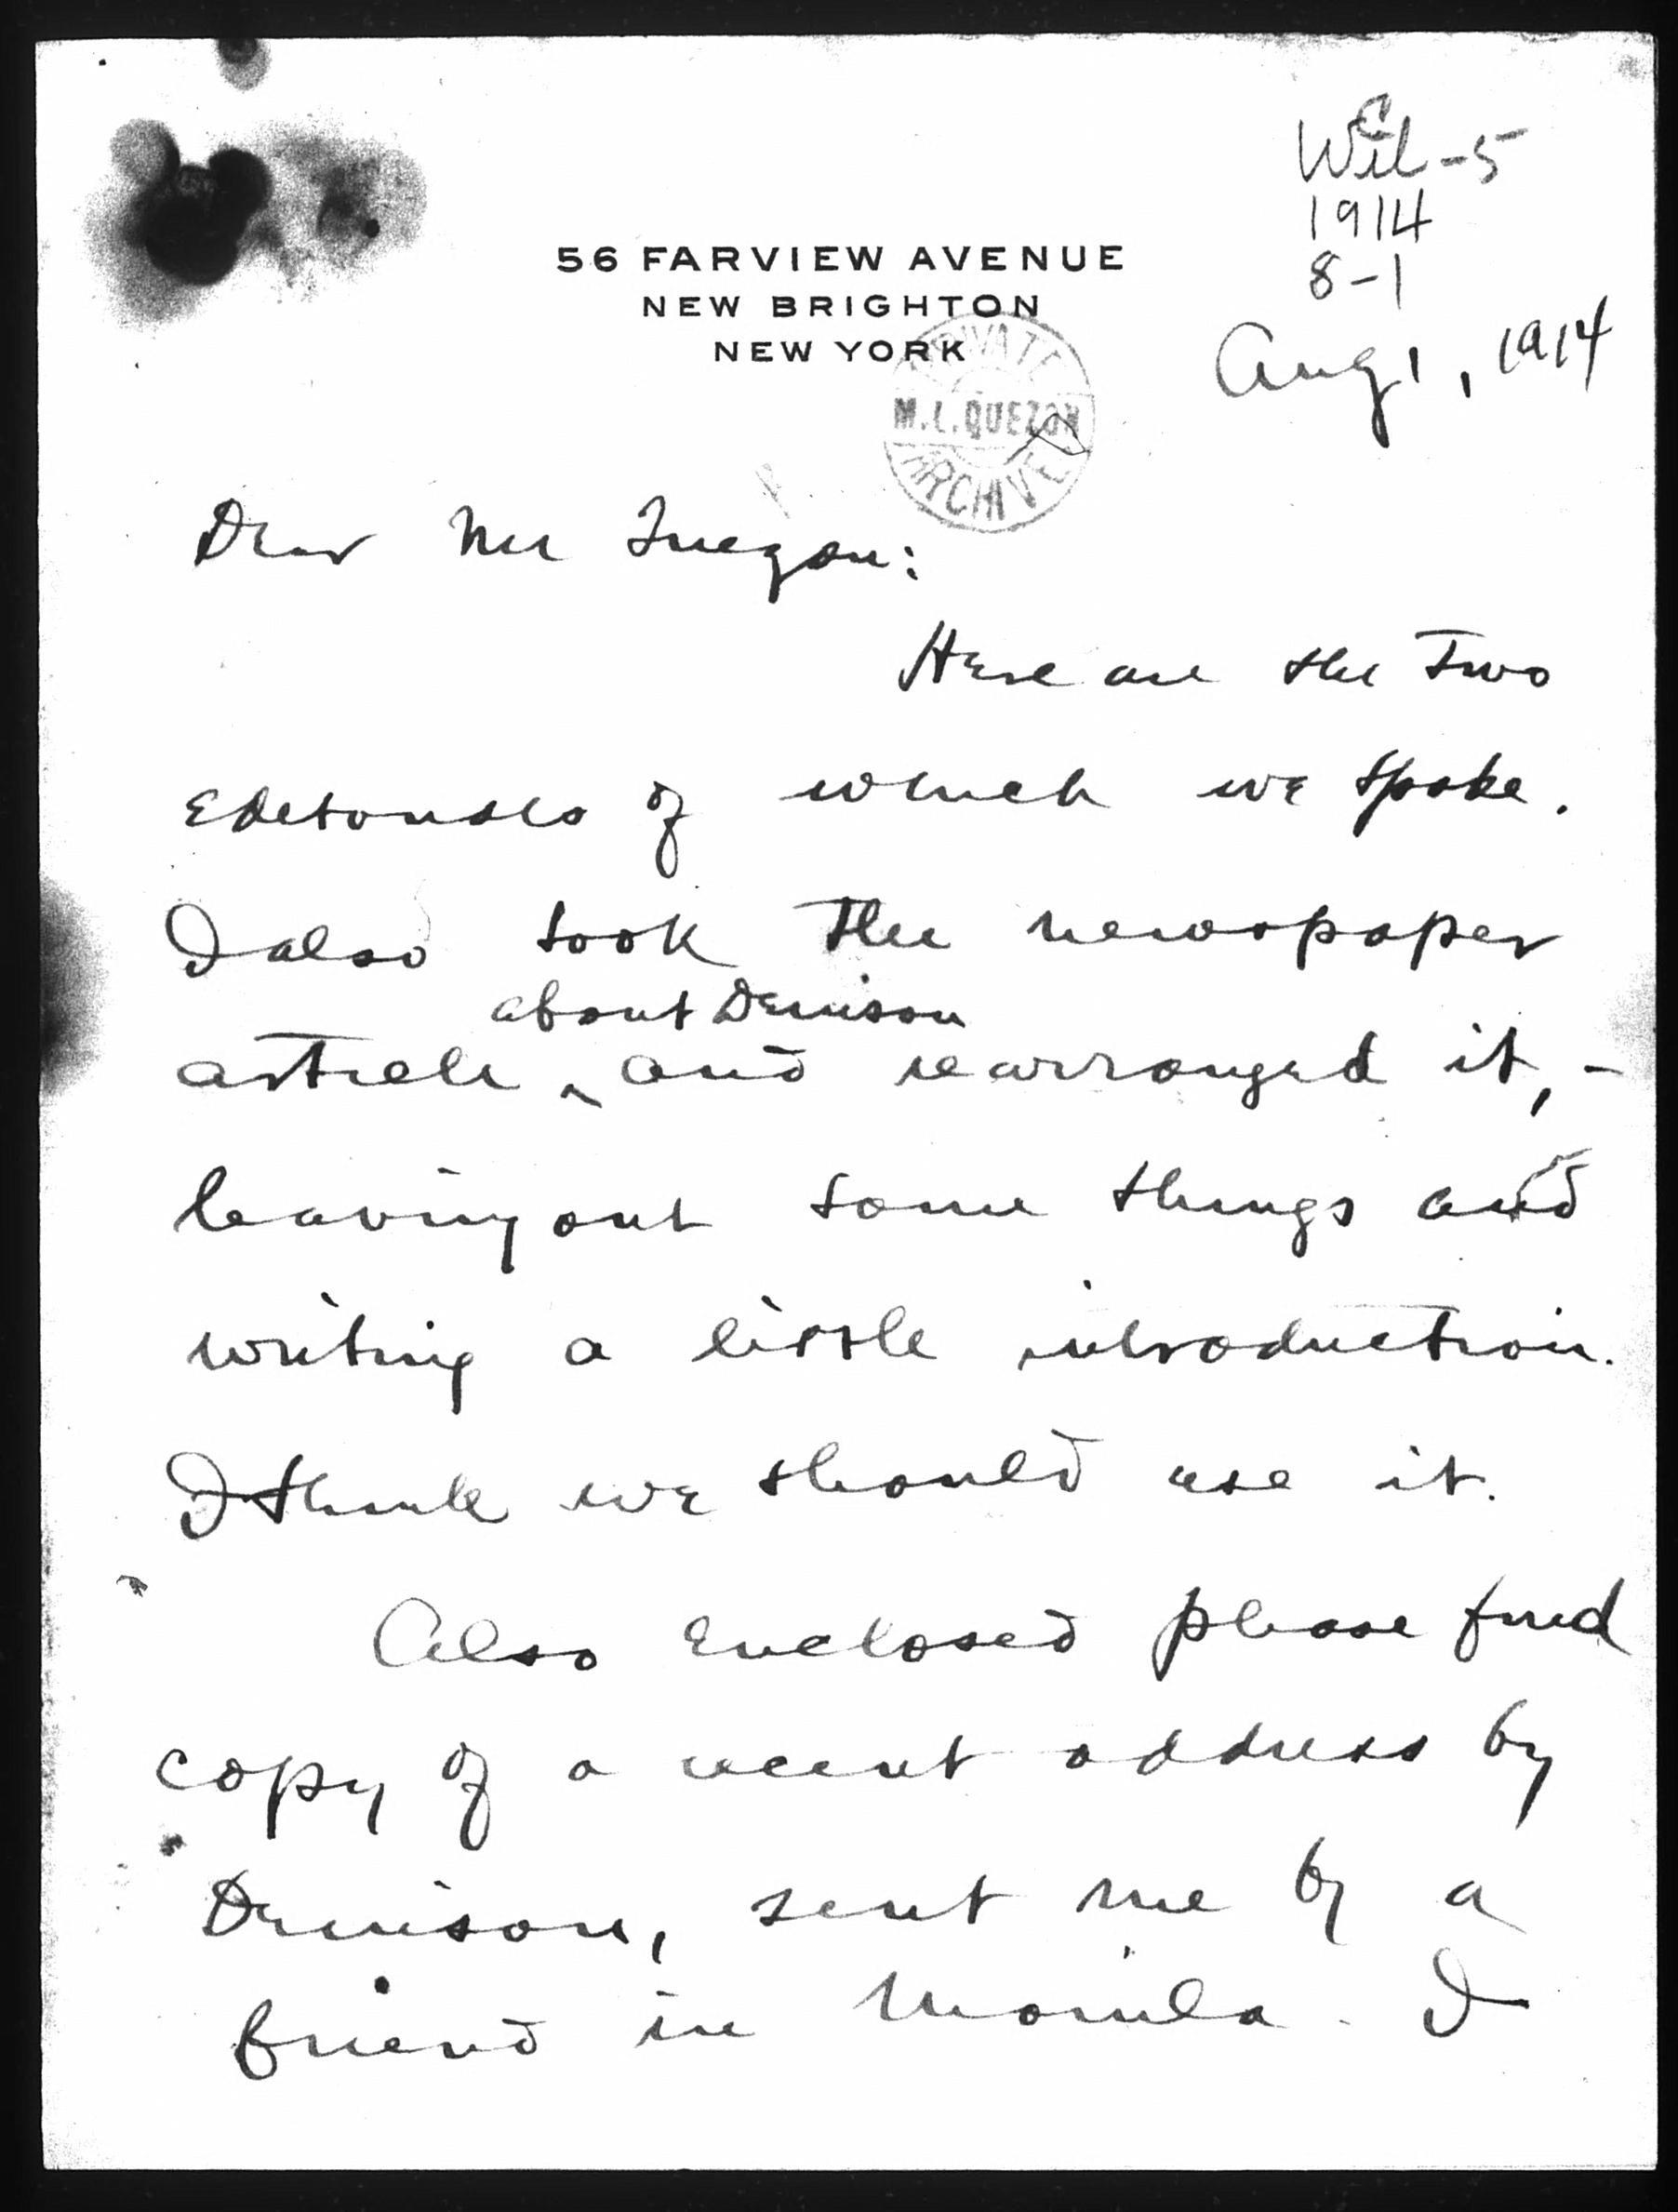 C
Wil-5
1914
8-1
56 FARVIEW AVENUE
NEW BRIGHTON
NEW YORK
Aug 1, 1914
PRIVATE
M. L. QUEZON
ARCHIVES
Dear Mr Quezon:
Here are the two
Editorials of which we spoke.
I also took the newspaper
about Denison
article ^ and rearranged it, -
leaving out some things and
writing a little introduction.
I think we should use it.
Also Enclosed please find
copy of a recent address by
Denison, sent me by a
friend in Manila. I